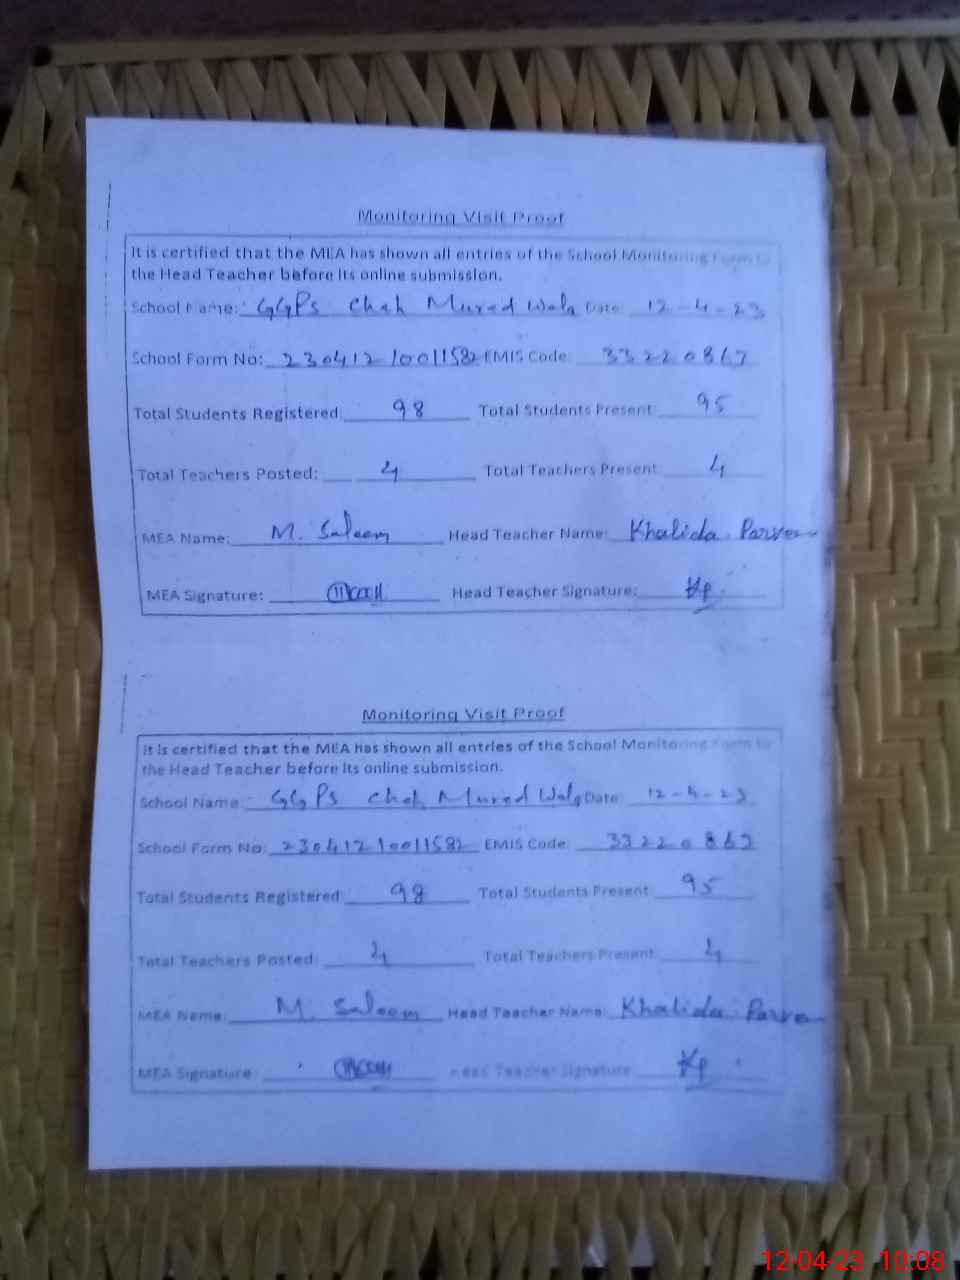 Monitoring Visit Proof
It is certified that the MEA has shown all entries of the School Monitoring Form to
the Head Teacher before its online submission.
School Name: GGPS Chah Mured Wala Date: 12-4-23
School Form No: 2304121001582 EMIS Code: 33220867
Total Students Registered: 98 Total Students Present: 95
Total Teachers Posted: 4 Total Teachers Present: 4
MEA Name: M. Saleem Head Teacher Name: Khalida Parveen
MEA Signature: Head Teacher Signature: Kp
Monitoring Visit Proof
It is certified that the MEA has shown all entries of the School Monitoring Form to
the Head Teacher before its online submission.
School Name: GGPS Chah Mured Wala Date: 12-4-23
School Form No: 2304121001582 EMIS Code: 33220867
Total Students Registered: 98 Total Students Present: 95
Total Teachers Posted: 4 Total Teachers Present: 4
MEA Name: M. Saleem Head Teacher Name: Khalida Parveen
MEA Signature: Head Teacher Signature: Kp
12-04-23 10:08